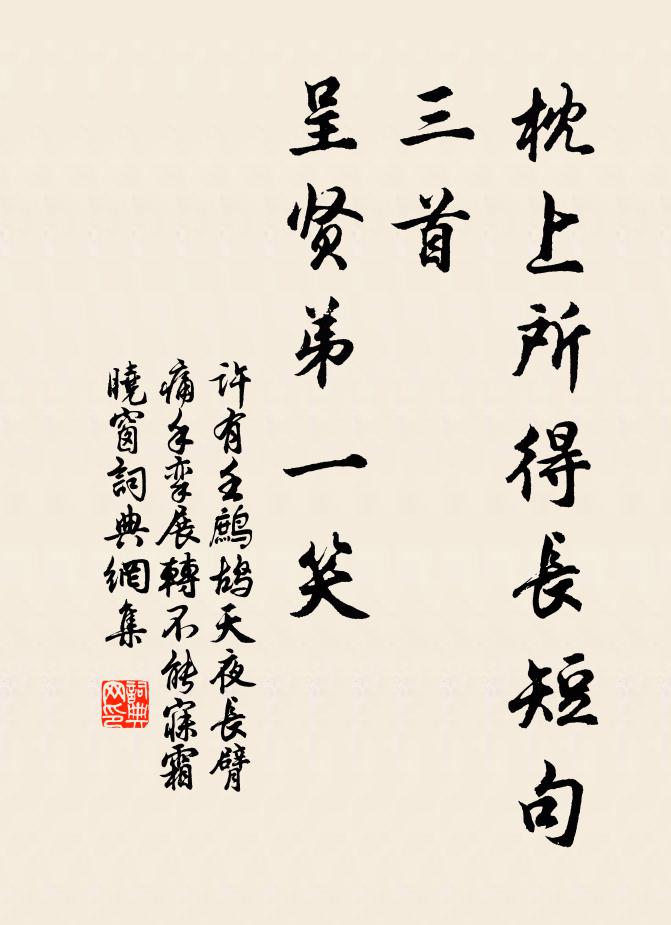 枕上所得長短句
三首
呈贤弟一笑
許有壬鷓鴣天夜長臂
痛手孪展轉不能寐霜
曉窗詞典網集
詞典
网印